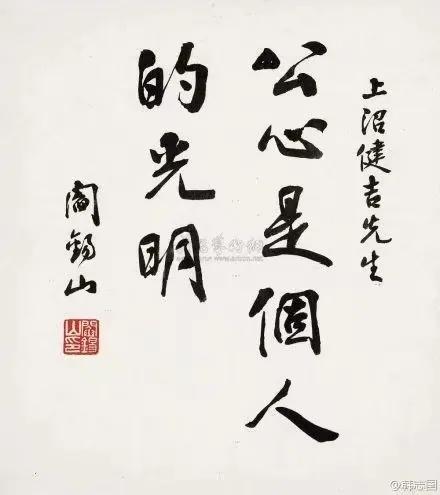 上沼健吉先生
公心是個人
的光明
閻錫山
閻錫山印
@韩志国